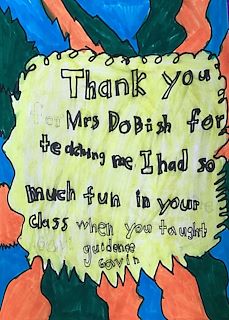 Thank you
for Mrs Dobish for
teaching me I had so
much fun in your
class when you taught
guidence
Gavin